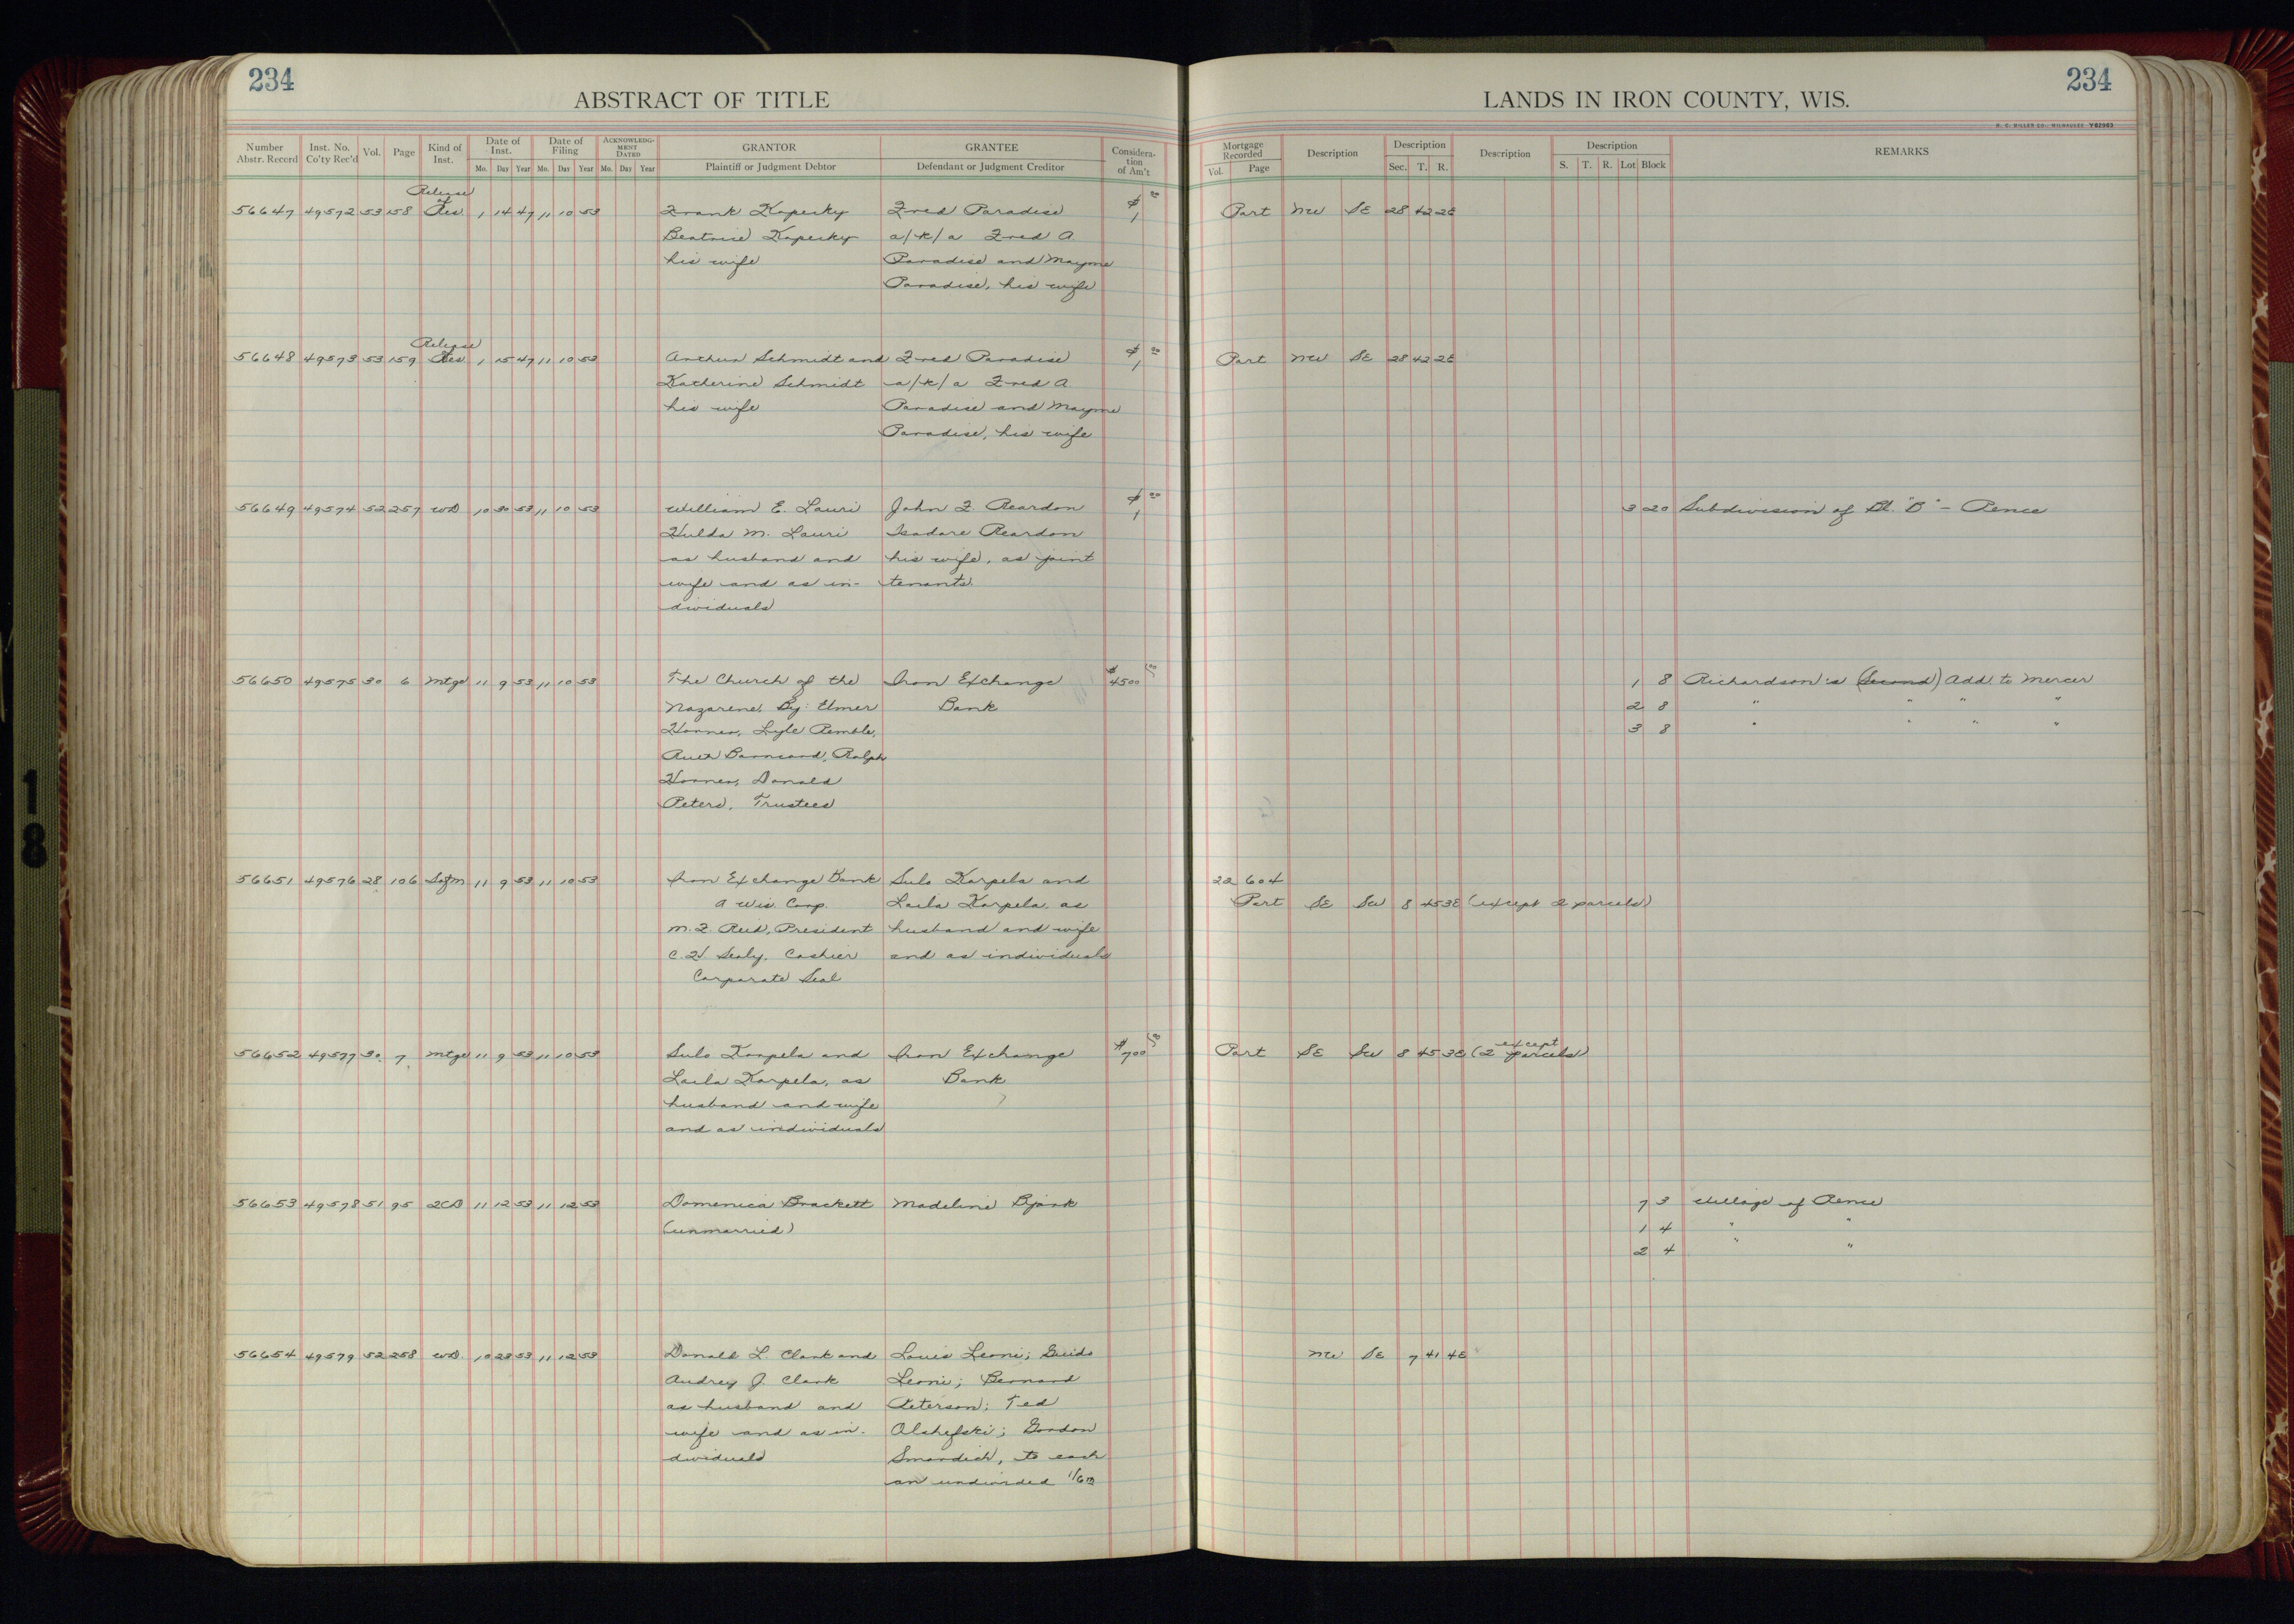 234
ABSTRACT OF TITLE
Number Abstr. Record | Inst. No. Co'ty Rec'd | Vol. | Page | Kind of Inst. | Date of Inst. Mo. Day Year | Date of Filing Mo. Day Year | ACKNOWLEDGMENT DATED Mo. Day Year | GRANTOR Plaintiff or Judgment Debtor | GRANTEE Defendant or Judgment Creditor | Consideration of Am't
234
LANDS IN IRON COUNTY, WIS.
H. C. MILLER CO., MILWAUKEE Y62963
Mortgage Recorded Vol. Page | Description | Description Sec. T. R. | Description | Description S. T. R. Lot Block | REMARKS
Release of
56647 49572 53 158 Res. 1 14 47 11 10 53 Frank Kopecky Fred Paradise $1 00 Part NW SE 28 42 2E
Beatrice Kopecky a/k/a Fred A.
his wife Paradise and Mayme
Paradise, his wife
Release
56648 49573 53 159 Res 1 15 47 11 10 53 Arthur Schmidt and Fred Paradise $1 00 Part NW SE 28 42 2E
Katherine Schmidt a/k/a Fred A.
his wife Paradise and Mayme
Paradise, his wife
56649 49574 52 257 WD 10 30 53 11 10 53 William E. Lauri John F. Reardon $1 00 3 20 Subdivision of Bl. "B" - Pence
Hulda M. Lauri Isadore Reardon
as husband and his wife, as joint
wife and as in- tenants.
dividuals
56650 49575 30 6 Mtge 11 9 53 11 10 53 The Church of the Iron Exchange $4500 00 1 8 Richardson's (Second) Add. to Mercer
Nazarene, By: Elmer Bank 2 8 " " " "
Horner, Lyle Remble, 3 8 " " " "
Barneard, Ralph
Horner, Donald
Peters, Trustees
56651 49576 28 106 Satfm 11 9 53 11 10 53 Iron Exchange Bank Sulo Karpela and 22 604
A Wis. Corp. Laila Karpela, as Part SE SW 8 45 3E (except 2 parcels)
M. F. Reid, President husband and wife
C. H. Sealy, Cashier and as individuals
Corporate Seal
56652 49577 30 7 Mtge 11 9 53 11 10 53 Sulo Karpela and Iron Exchange $700 00 Part SE SW 8 45 3E (2 except parcels)
Laila Karpela, as Bank
husband and wife
and as individuals
56653 49578 51 95 2CD 11 12 53 11 12 53 Domenica Brackett Madeline Bjork 7 3 Village of Pence
(unmarried) 1 4 " "
2 4 " "
56654 49579 52 258 WD. 10 28 53 11 12 53 Donald L. Clark and Louis Leoni; Guido NW SE 7 41 4E
Audrey J. Clark Leoni; Bernard
as husband and Peterson; Ted
wife and as in- Olshefski; Gordon
dividuals Smardich, to each
an undivided 1/6th
18